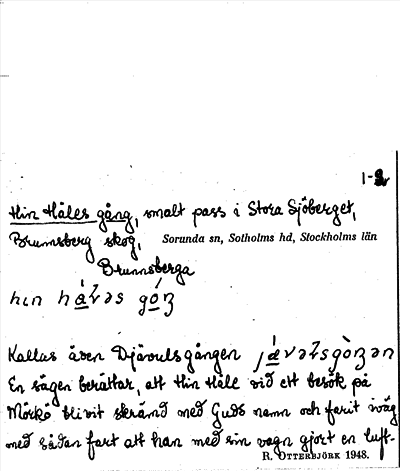 1-2
Hin Håles gång, smalt pass i Stora Sjöberget,
Brunnsberg skog, Sorunda sn, Sotholms hd, Stockholms län
Brunnsberga
Kallas även Djävulsgången
En sägen berättar, att Hin Håle vid ett besök på
Mörkö blivit skrämd med Guds namn och farit iväg
med sådan fart att han med sin vagn gjort en luft-
R. OTTERBJÖRK 1948.